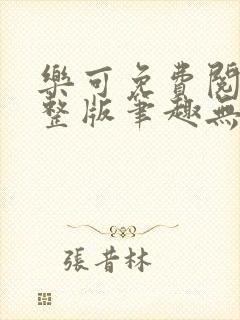 樂可免費閱
整版筆趣無
張昔林